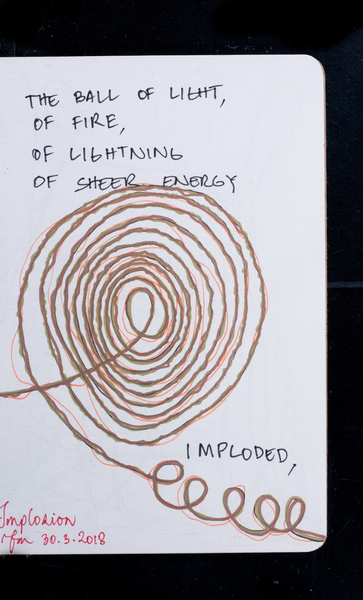 THE BALL OF LIGHT,
OF FIRE,
OF LIGHTNING
OF SHEER ENERGY
IMPLODED,
Implosion
30.3.2018